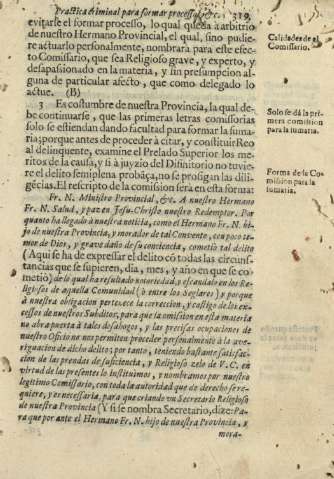 Practica criminal para formar processos, &c. 319
evitarse el formar processo, lo qual queda à arbitrio
de nuestro Hermano Provincial, el qual, sino pudie-
re actuarlo personalmente, nombrarà para este efec-
to Comissario, que sea Religioso grave, y experto, y
desapasionado en la materia, y sin presumpcion al-
guna de particular afecto, que como delegado lo
actue. (B)
Calidades de el
Comissario.
3 Es costumbre de nuestra Provincia, la qual de-
be continuarse, que las primeras letras comissorias
solo se estiendan dando facultad para formar la suma-
ria; porque antes de proceder à citar, y constituir Reo
al delinquente, examine el Prelado Superior los me-
ritos de la causa, y si à juyzio del Difinitorio no tuvie-
re el delito semiplena probãça, no se prosigan las dili-
gẽcias. El rescripto de la comission serà en esta forma:
Solo se dà la pri-
mera comission
para la sumaria.
Forma de la Co-
mission para la
sumaria.
Fr. N. Ministro Provincial, &c. A nuestro Hermano
Fr. N. Salud, y paz en Jesu-Christo nuestro Redemptor. Por
quanto ha llegado à nuestra noticia, como el Hermano Fr. N. hi-
jo de nuestra Provincia, y morador de tal Convento, con poco te-
mor de Dios, y grave daño de su conciencia, cometiò tal delito
(Aqui se ha de expressar el delito cõ todas las circuns-
tancias que se supieren, dia, mes, y año en que se co-
metiò) de lo qual ha resultado notoriedad, y escandalo en los Re-
ligiosos de aquella Comunidad (ò entre los Seglares) y porque
à nuestra obligacion pertenece la correccion, y castigo de los ex-
cessos de nuestros Subditos, para que la omission en esta materia
no abra puerta à tales desahogos, y las precisas ocupaciones de
nuestro Oficio no nos permiten proceder personalmente à la ave-
riguacion de dicho delito; por tanto, teniendo bastante satisfac-
cion de las prendas de suficiencia, y Religioso zelo de V. C. en
virtud de las presentes lo instituimos, y nombramos por nuestro
legitimo Comissario, con toda la autoridad que de derecho se re-
quiere, y es necessaria, para que criando un Secretario Religioso
de nuestra Provincia (Y si se nombra Secretario, dize: Pa-
ra que por ante el Hermano Fr. N. hijo de nuestra Provincia, y
mora-